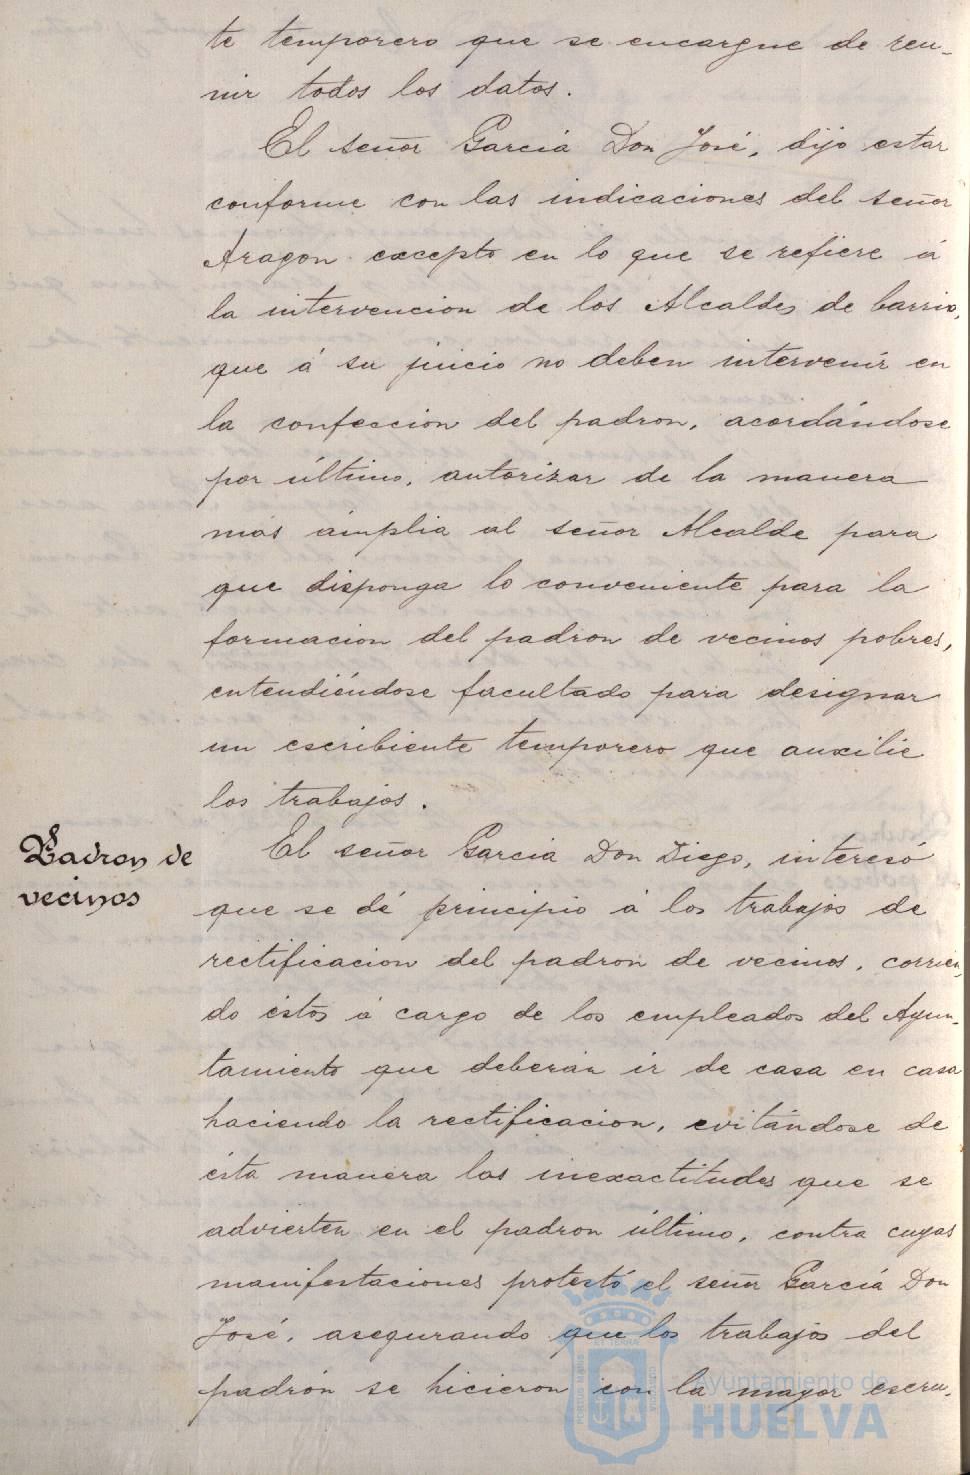 te temporero que se encargue de reu-
nir todos los datos.
El señor Garciá Don José, dijo estar
conforme con las indicaciones del señor
Aragon excepto en lo que se refiere á
la intervencion de los Alcaldes de barrio,
que á su juicio no deben intervenir en
la confeccion del padron, acordándose
por último, autorizar de la manera
mas ámplia al señor Alcalde para
que disponga lo conveniente para la
formacion del padron de vecinos pobres,
entendiéndose facultado para designar
un escribiente temporero que auxilie
los trabajos.
Padron de
vecinos
El señor Garcia Don Diego, interesó
que se dé principio á los trabajos de
rectificacion del padron de vecinos, corrien-
do éstos á cargo de los empleados del Ayun-
tamiento que deberán ir de casa en casa
haciendo la rectificacion, evitándose de
ésta manera las inexactitudes que se
advierten en el padron último, contra cuyas
manifestaciones protestó el señor Garciá Don
José, asegurando que los trabajos del
padrón se hicieron con la mayor escru-
Ayuntamiento de
HUELVA